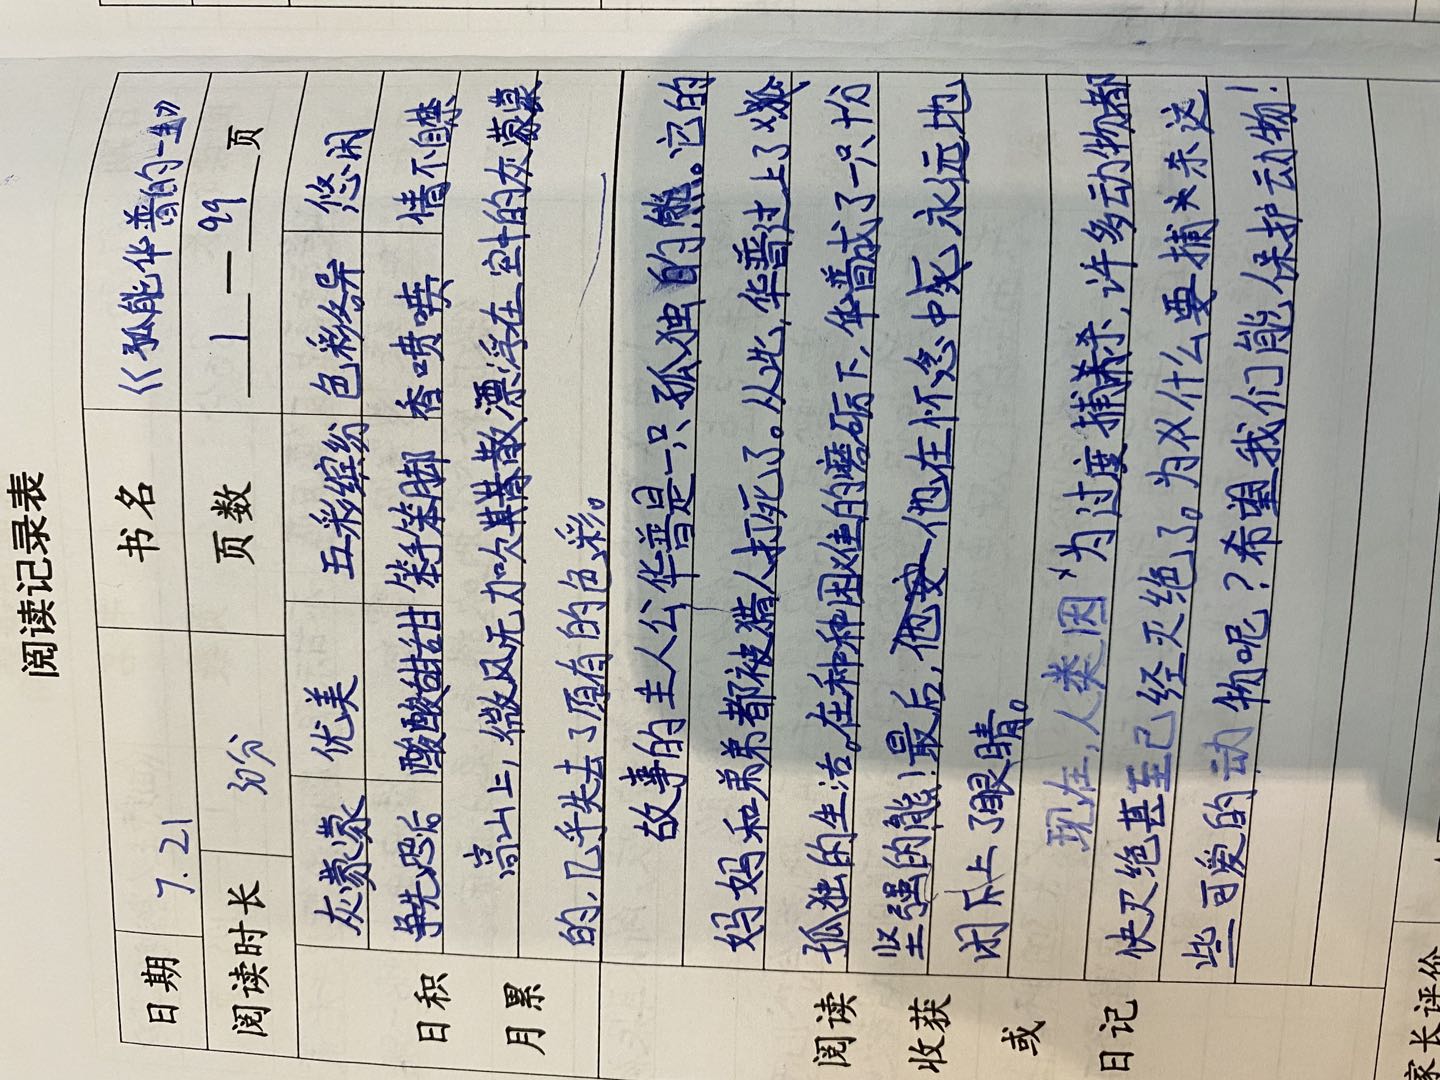 阅读记录表
日期 7.21 书名 《孤熊华普的一生》
阅读时长 30分 页数 1—99页
日积月累
灰蒙蒙 优美 五彩缤纷 色彩各异 悠闲
争先恐后 酸酸甜甜 笨手笨脚 香喷喷 情不自禁
高山上,微风无力吹散漂浮在空中的灰蒙蒙
的,几乎失去了原有的色彩。
阅读收获或日记
故事的主人公华普是一只孤独的熊。它的
妈妈和弟弟都被猎人打死了。从此,华普过上了
孤独的生活。在种种困难的磨砺下,华普成了一只十分
坚强的熊!最后,他在怀念中永远地
闭上了眼睛。
现在,人类因为过度捕杀,许多动物都
快灭绝甚至已经灭绝了。为什么要捕杀这
些可爱的动物呢?希望我们能保护动物!
家长评价